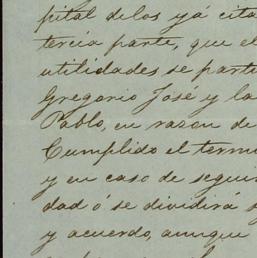 pital de los yá cita
tercia parte, que el
utilidades se parti
Gregorio José y la
Pablo, en razon de
Cumplido el termi
y en caso de segui
dad ó se dividirá
y acuerdo, aunque